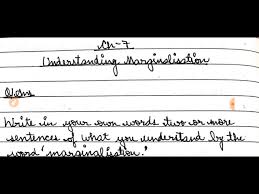 Ch-7
Understanding Marginalisation
Ques
Write in your own words two or more
sentences of what you understand by the
word 'marginalisation.'